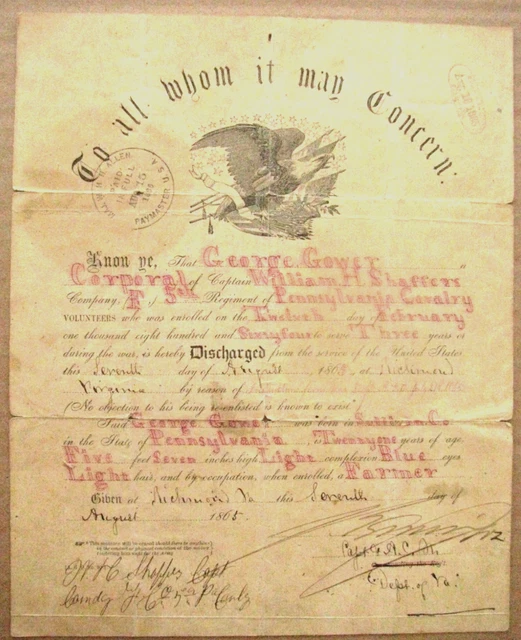 To all whom it may Concern:
ALLEN
PAID
IN FULL
15
PAYMASTER U.S.A
Know ye, That George Gower
Corporal of Captain William H Shaffers
Company, F, 5th Regiment of Pennsylvania Cavalry
VOLUNTEERS who was enrolled on the Twelveth day of February
one thousand eight hundred and Sixtyfour to serve Three years or
during the war, is hereby Discharged from the service of the United States
this Seventh day of August, 1865, at Richmond
Virginia by reason of
(No objection to his being re-enlisted is known to exist.)
Said George Gower was born in Sullivan Co
in the State of Pennsylvania, is Twentyone years of age,
Five feet Seven inches high, Light complexion, Blue eyes,
Light hair, and by occupation, when enrolled, a Farmer
Given at Richmond Va this Seventh day of
August 1865.
Capt & A.C.M.
Dept. of Va.
Capt
Comdg Co 5th Pa Cavly